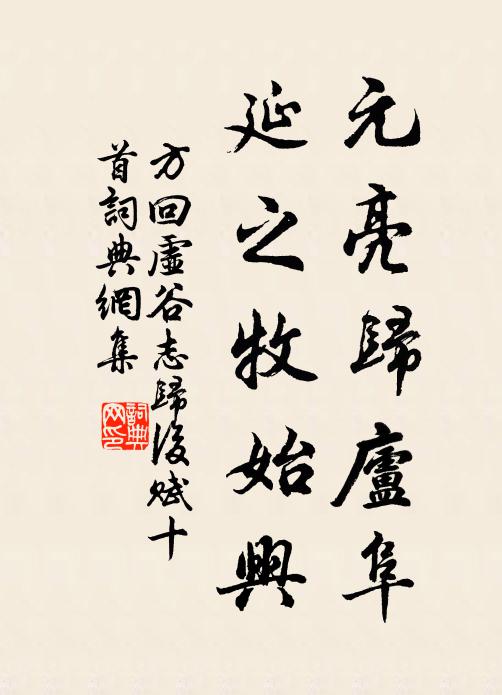 元亮歸廬阜
延之牧始興
方回虛谷志歸後賦十
首詞典網集
詞典
网印